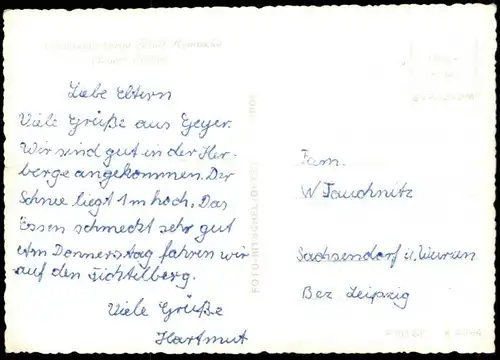 Liebe Eltern
Viele Grüße aus Geyer.
Wir sind gut in der Her-
berge angekommen. Der
Schnee liegt 1m hoch. Das
Essen schmeckt sehr gut
Am Donnerstag fahren wir
auf den Fichtilberg.
Viele Grüße
Hartmut
Fam.
W Tauchnitz
Sachsendorf ü. Wurzen
Bez Leipzig